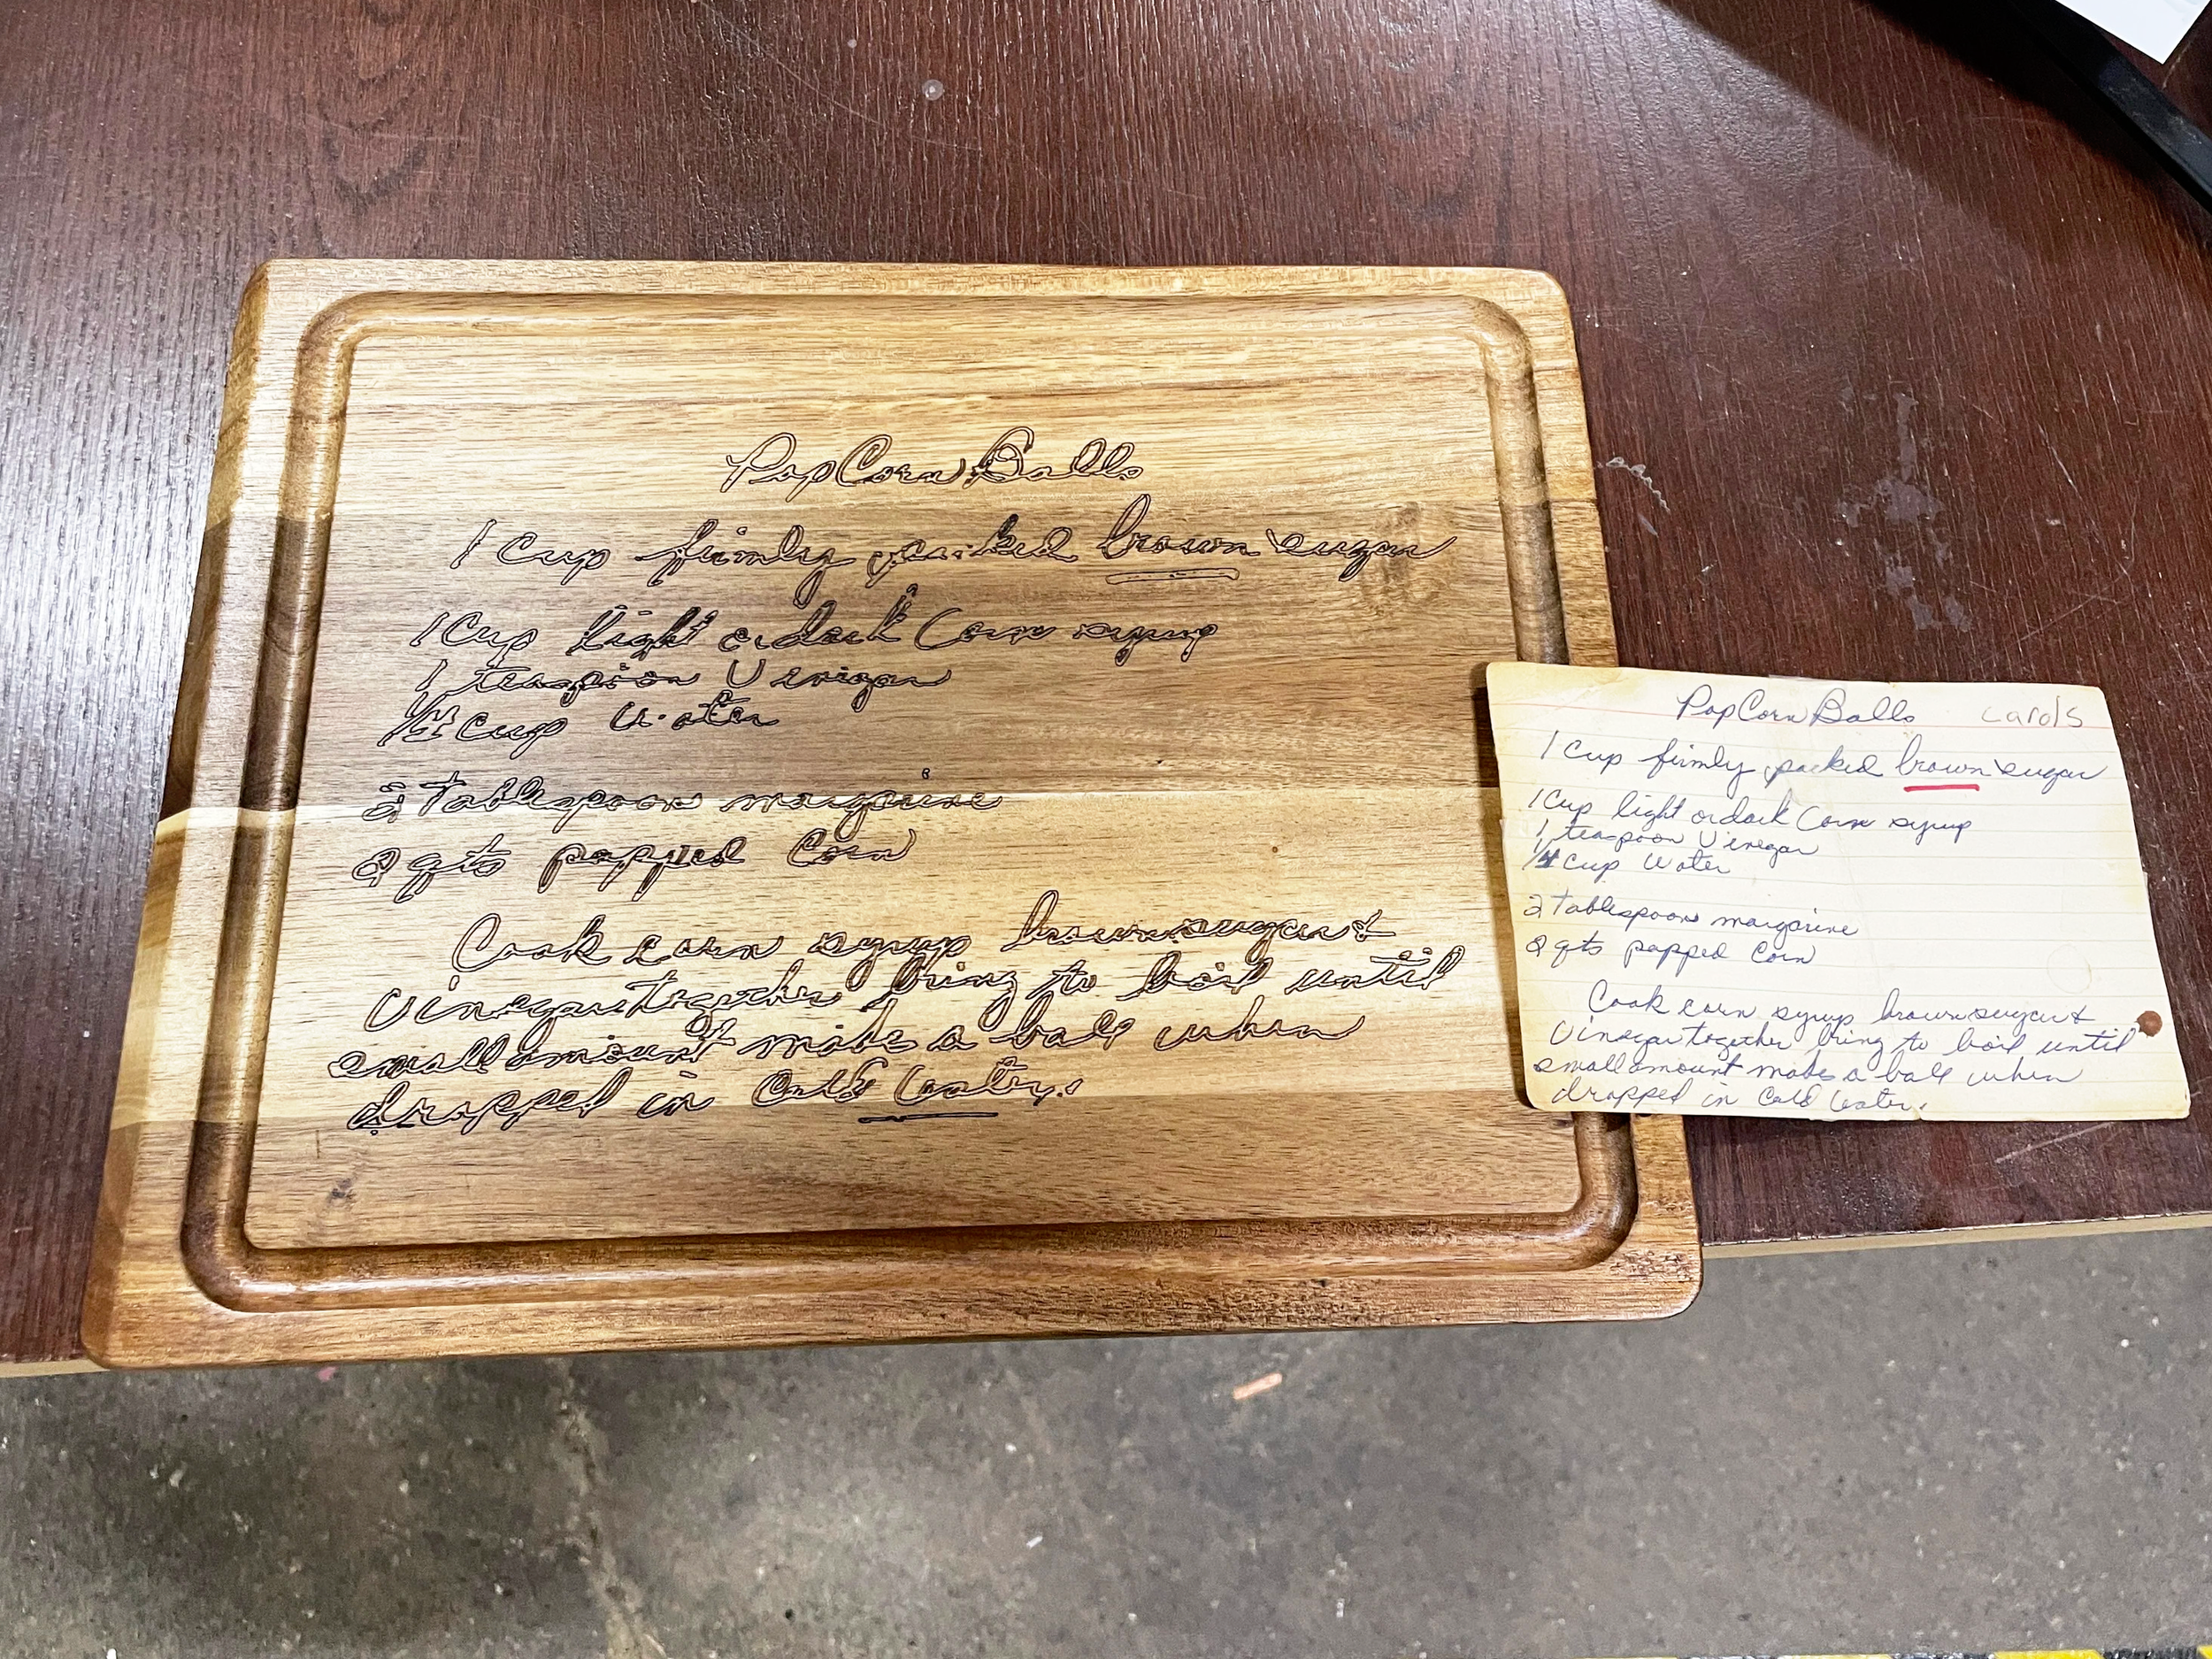 PopCorn Balls
1 Cup firmly packed brown sugar
1 Cup light or dark Corn syrup
1 teaspoon Vinegar
1/4 Cup Water
2 Tablespoons margarine
2 qts popped Corn
Cook corn syrup brown sugar &
Vinegar together bring to boil until
small amount makes a ball when
dropped in Cold Water.
PopCorn Balls Carols
1 Cup firmly packed brown sugar
1 Cup light or dark Corn syrup
1 teaspoon Vinegar
1/4 Cup Water
2 Tablespoons margarine
2 qts popped Corn
Cook corn syrup brown sugar &
Vinegar together bring to boil until
small amount makes a ball when
dropped in Cold Water.